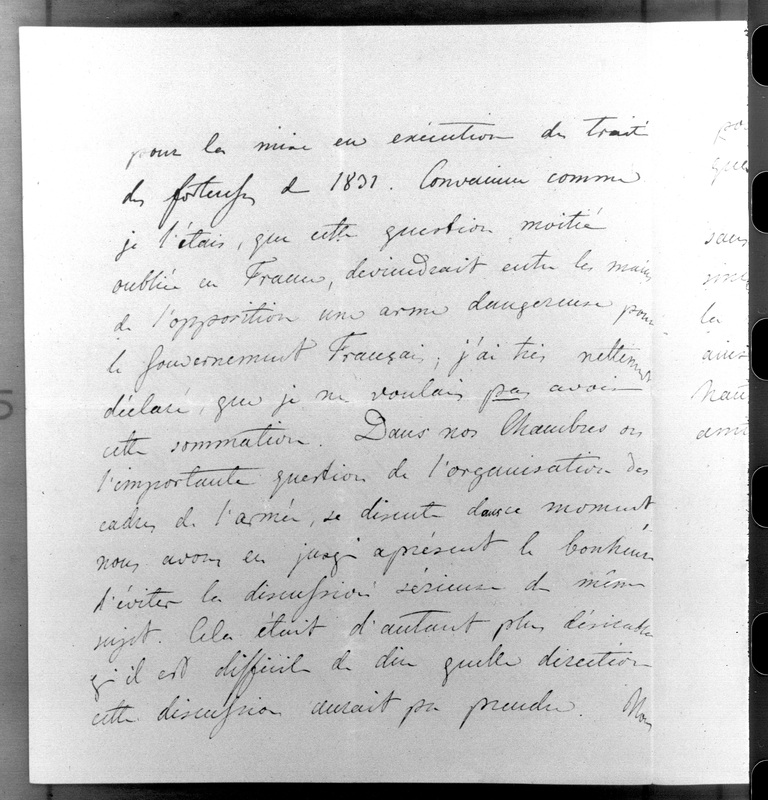 pour la mise en exécution du traité
des forteresses de 1831. Convaincu comme
je l'étais, que cette question moitié
oubliée en France, deviendrait entre les mains
de l'opposition une arme dangereuse pour
le Gouvernement Français, j'ai très nettement
déclaré, que je ne voulais pas avoir
cette sommation. Dans nos Chambres où
l'importante question de l'organisation des
cadres de l'armée, se discute dans ce moment
nous avons eu jusqu'àprésent le bonheur
d'éviter la discussion sérieuse de même
sujet. Cela était d'autant plus désirable
qu'il est difficile de dire quelle direction
cette discussion aurait pu prendre. Nous
sans
la